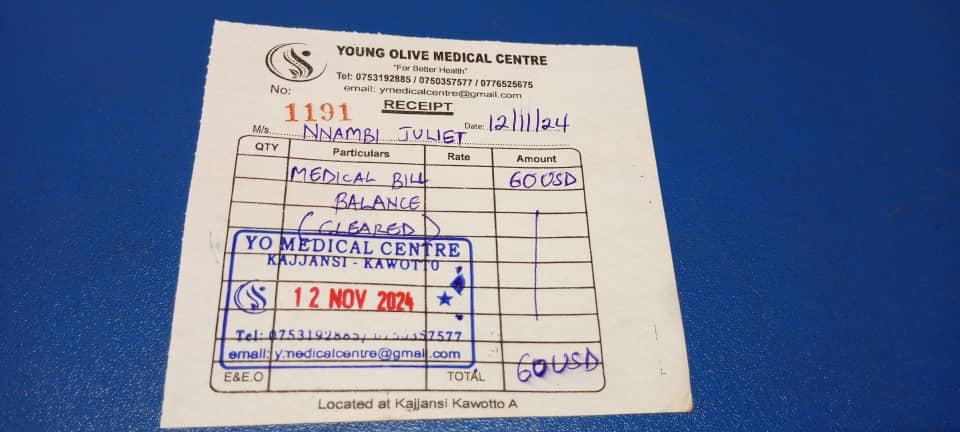 YOUNG OLIVE MEDICAL CENTRE
"For Better Health"
Tel: 0753192885 / 0750357577 / 0776525675
email: ymedicalcentre@gmail.com
No: 1191
RECEIPT
Date: 12/11/24
M/s. NNAMBI JULIET
QTY Particulars Rate Amount
MEDICAL BILL 60USD
BALANCE
(CLEARED)
YO MEDICAL CENTRE
KAJJANSI - KAWOTTO
12 NOV 2024
Tel: 0753192885/ 577
email: y.medicalcentre@gmail.com
E&E.O TOTAL 60USD
Located at Kajjansi Kawotto A